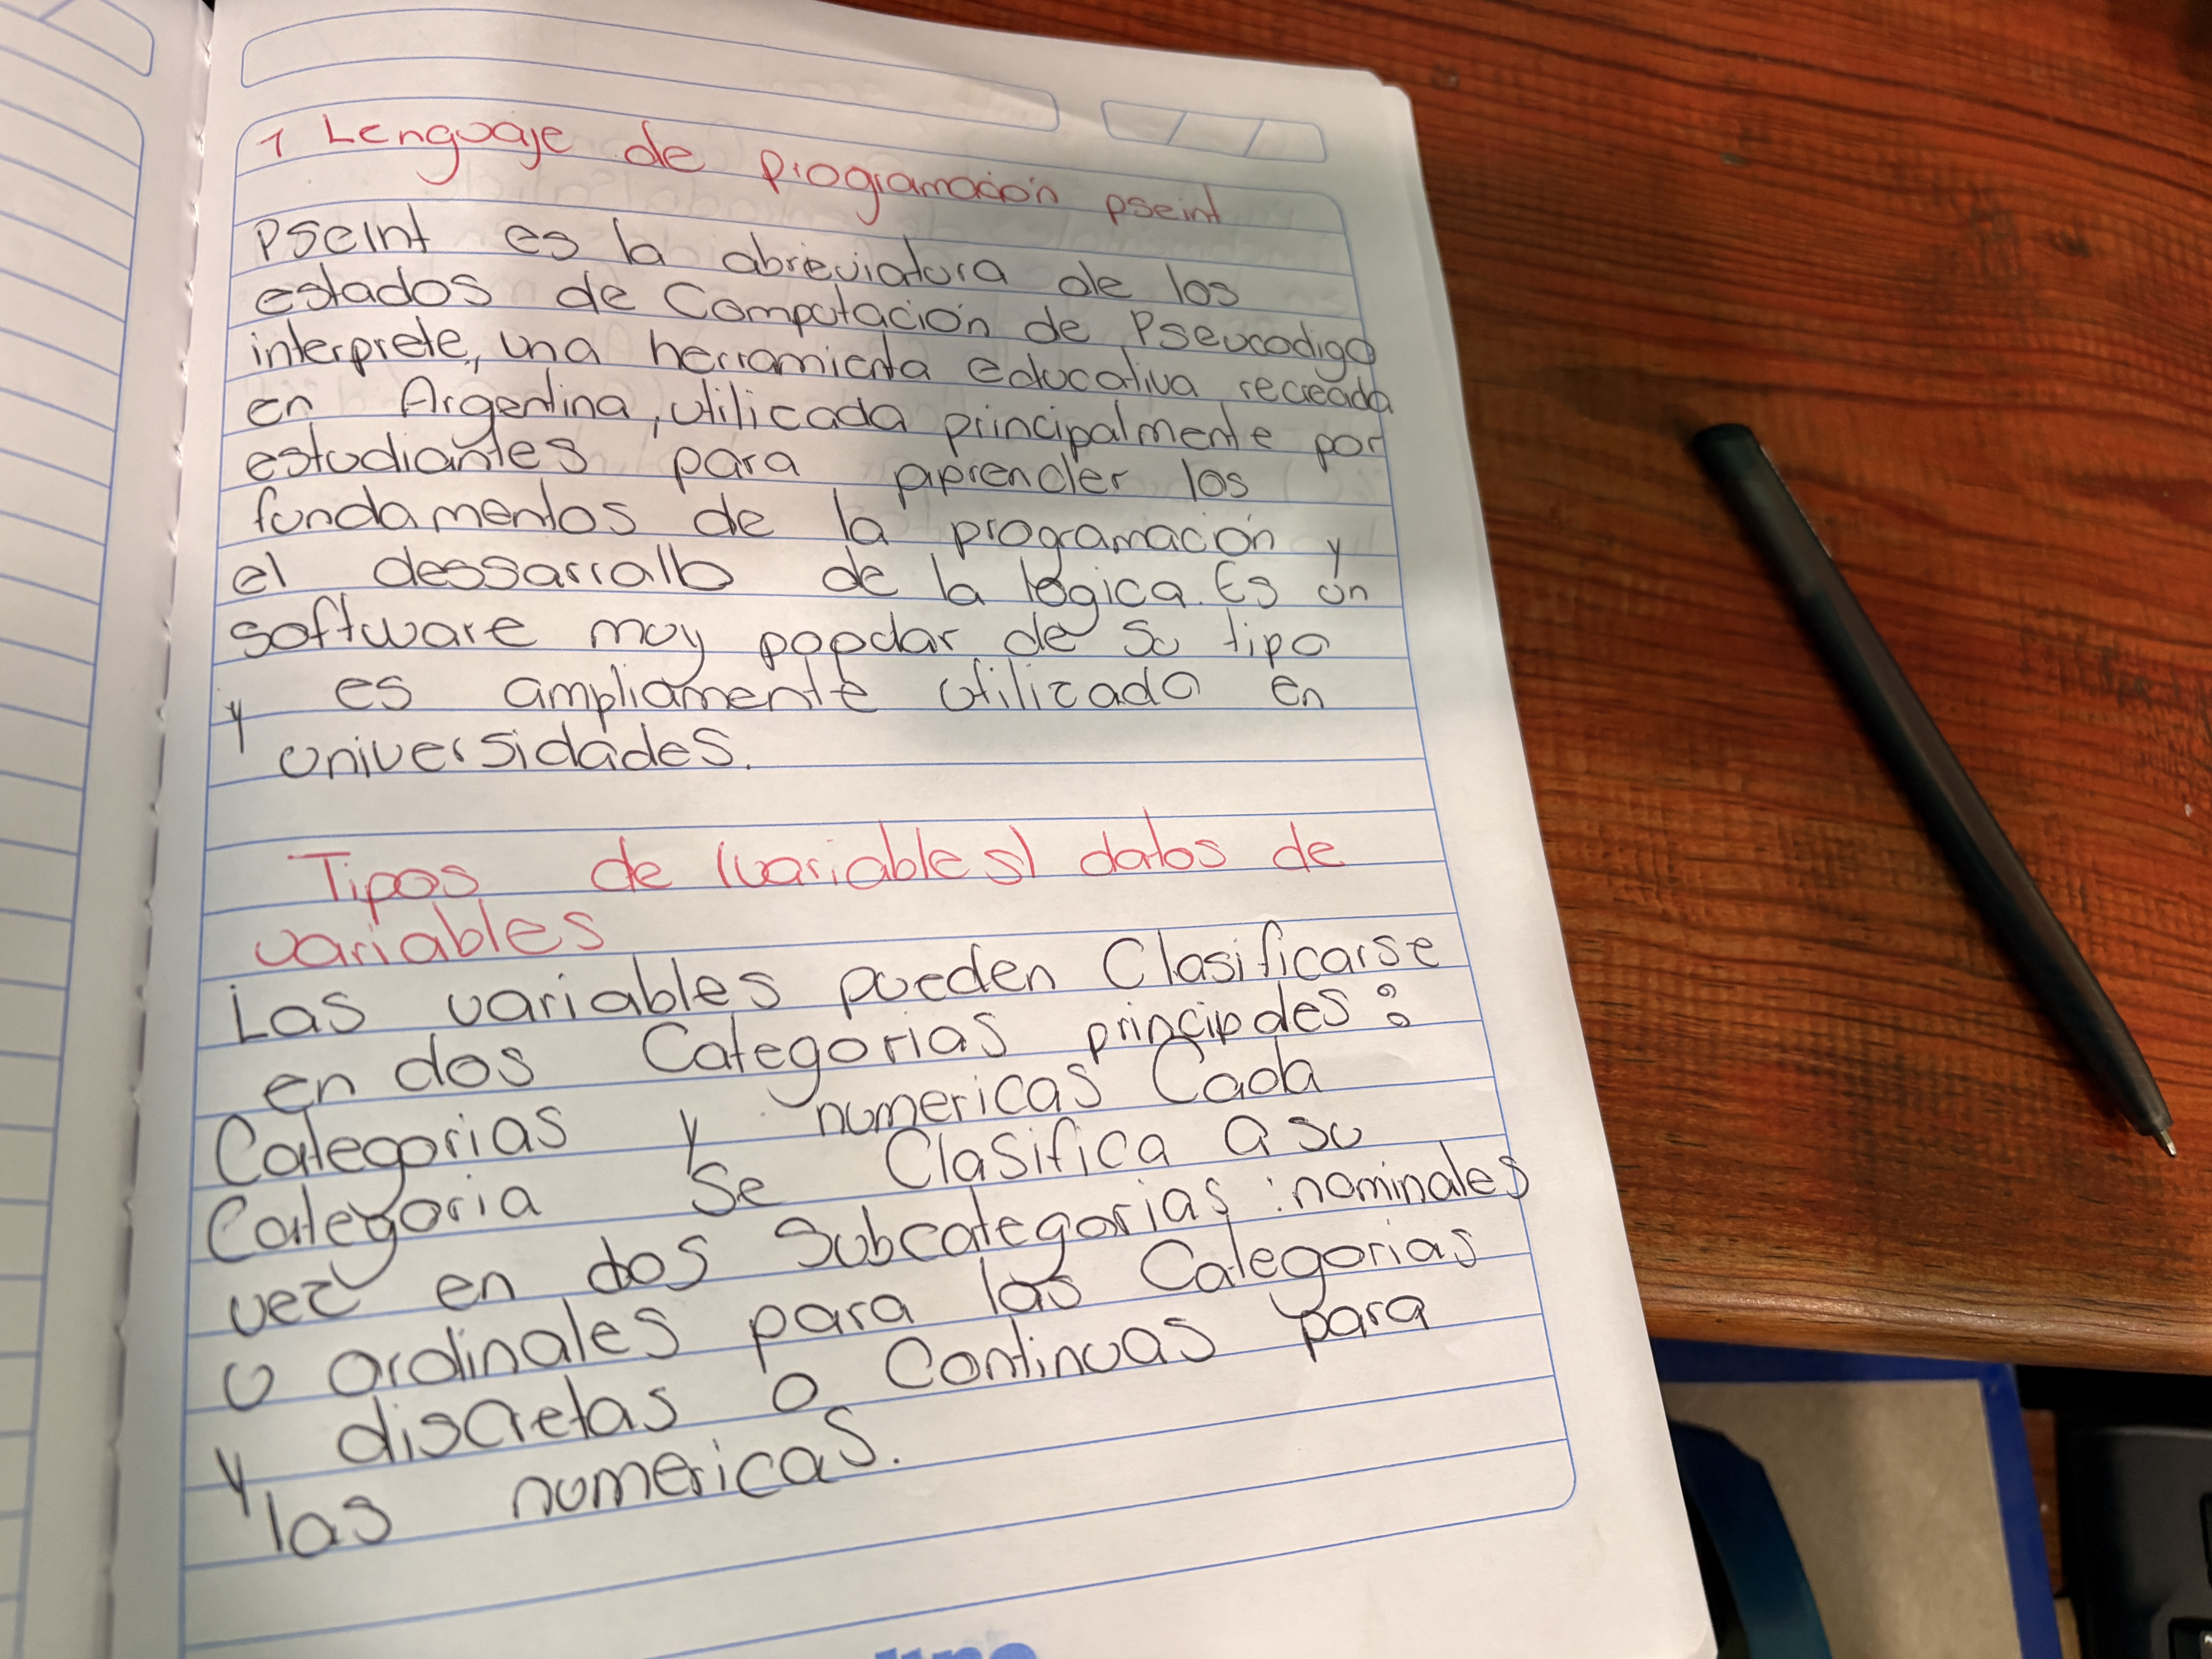 1 Lenguaje de programación pseint
PSeInt es la abreviatura de los
estados de Computación de Pseucodigo
interprete, una herramienta educativa recreada
en Argentina, utilicada principalmente por
estudiantes para aprender los
fundamentos de la programación y
el dessarrallo de la lógica. Es un
software muy popular de su tipo
y es ampliamente utilizado en
universidades.
Tipos de (variables) datos de
variables
Las variables pueden Clasificarse
en dos Categorias principales:
Categorias y numericas Cada
Categoria Se Clasifica a su
vez en dos Subcategorias: nominales
u ordinales para las Categorias
y discretas o Continuas para
las numericas.